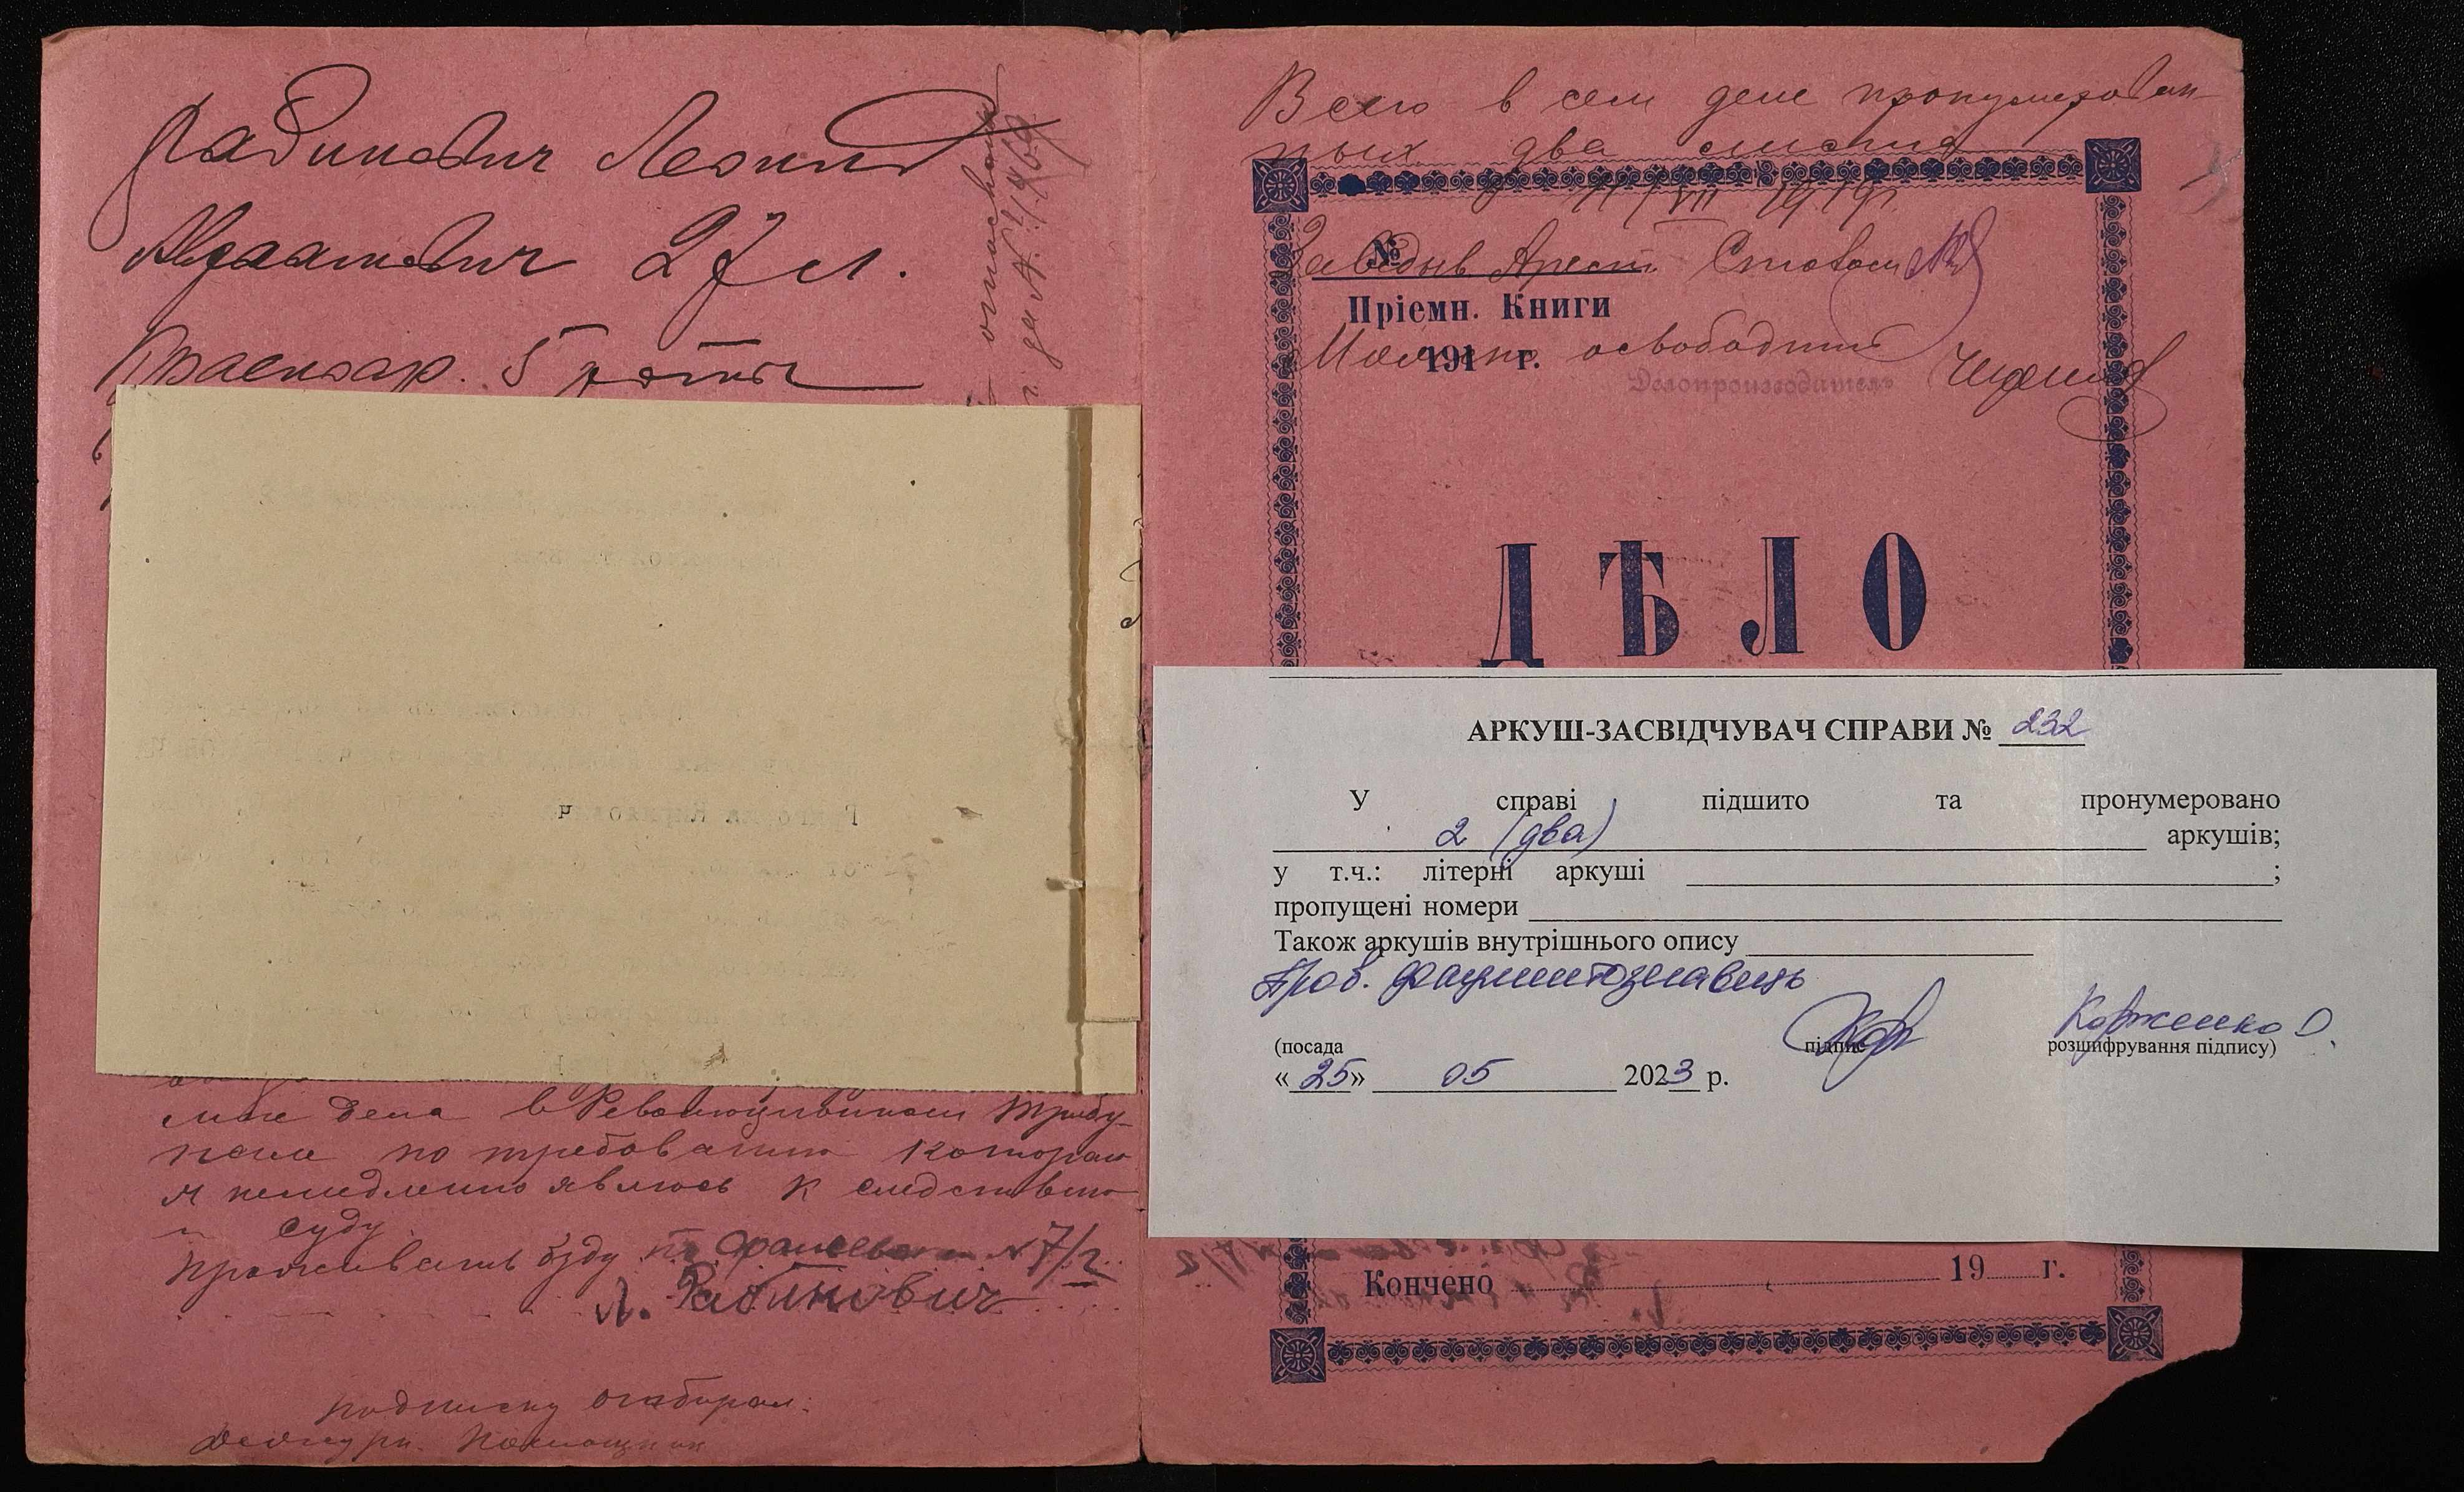 Рабинович Леонид
Абрамович 27 л.
Красноар. 5 роты
мое дела в Революционном Трибу-
нале по требованию которой
я немедленно явлюсь к следствию
и суду.
Проживать буду по № 7/2
Л. Рабинович
подписку отобрал:
Дежурн. Помощник
Всего в сем деле пронумерован
ных два листа
11/VII 1919 г.
Заведыв Арест. Столом
№
Пріемн. Книги
Можно освободить
191 г.
Делопроизводитель
ДѢЛО
АРКУШ-ЗАСВІДЧУВАЧ СПРАВИ № 232
У справі підшито та пронумеровано
2 (два) аркушів;
у т.ч.: літерні аркуші ;
пропущені номери
Також аркушів внутрішнього опису
Пров. документознавець
Корженко О.
(посада підпис розшифрування підпису)
«25» 05 2023 р.
Кончено 19 г.